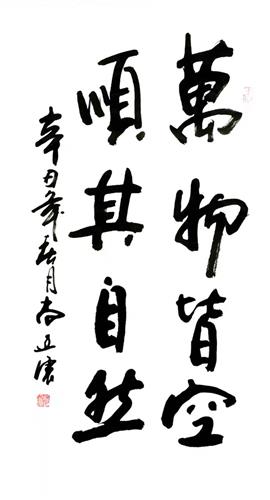 萬物皆空
順其自然
辛丑年春月尚亚僕